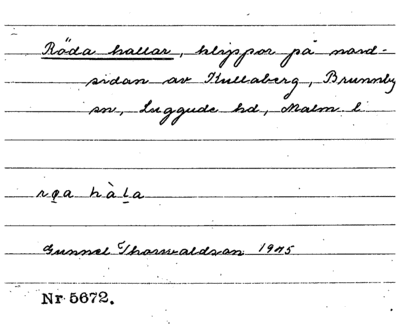 Röda hallar, klippor på nord-
sidan av Kullaberg, Brunnby
sn, Luggude hd, Malm. l
hàḷa
Gunnel Thorwaldson 1975
Nr 5672.